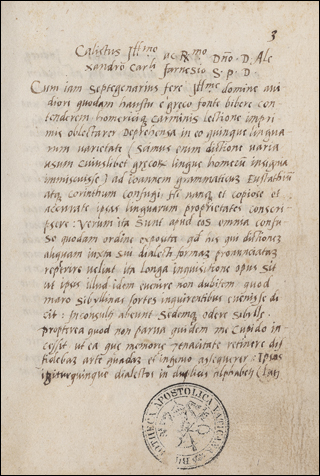 3
Calistus Illmo ac Rmo Dño. D. Ale
xandro Carli farnesio S. P. D.
Cum iam septegenarius fere Illme domine aui
diori quodam haustu e greco fonte bibere con
tenderem homericiq carminis lectione impri
mis oblectarer Deprehensa in eo quinque lingua
rum uarietate (Samus enim dictione uaria
usum cuiuslibet grecor lingue homerum insigna
immiscuisse) ad ioannem grammaticum Eustathium
atq Corinthum confugi. Hi nanq et copiose et
accurate ipsas linguarum proprietates conscri
psere. Verum ita sunt apud eos omnia confu
so quodam ordine exposita qd nis qui dictionem
aliquam iuxta sui dialecti formam pronunciatam
referre uelint ita longa inquisitione opus sit
ut ipsus illud idem euenire non dubitem quod
moro sibyllinas sortes inquirentibus euenisse di
cit: Inconsulti abeunt sedemq odere sibille.
propterea quod non parua quidem me cupido in
cessit ut ea que memorie tenacitate retinere dif
ficile arte quadam et ingenio assequerer. Ipsas
igitur quinque dialectos in duplicis alphabeti (Ias)
BIBLIOTHECA APOSTOLICA VATICANA